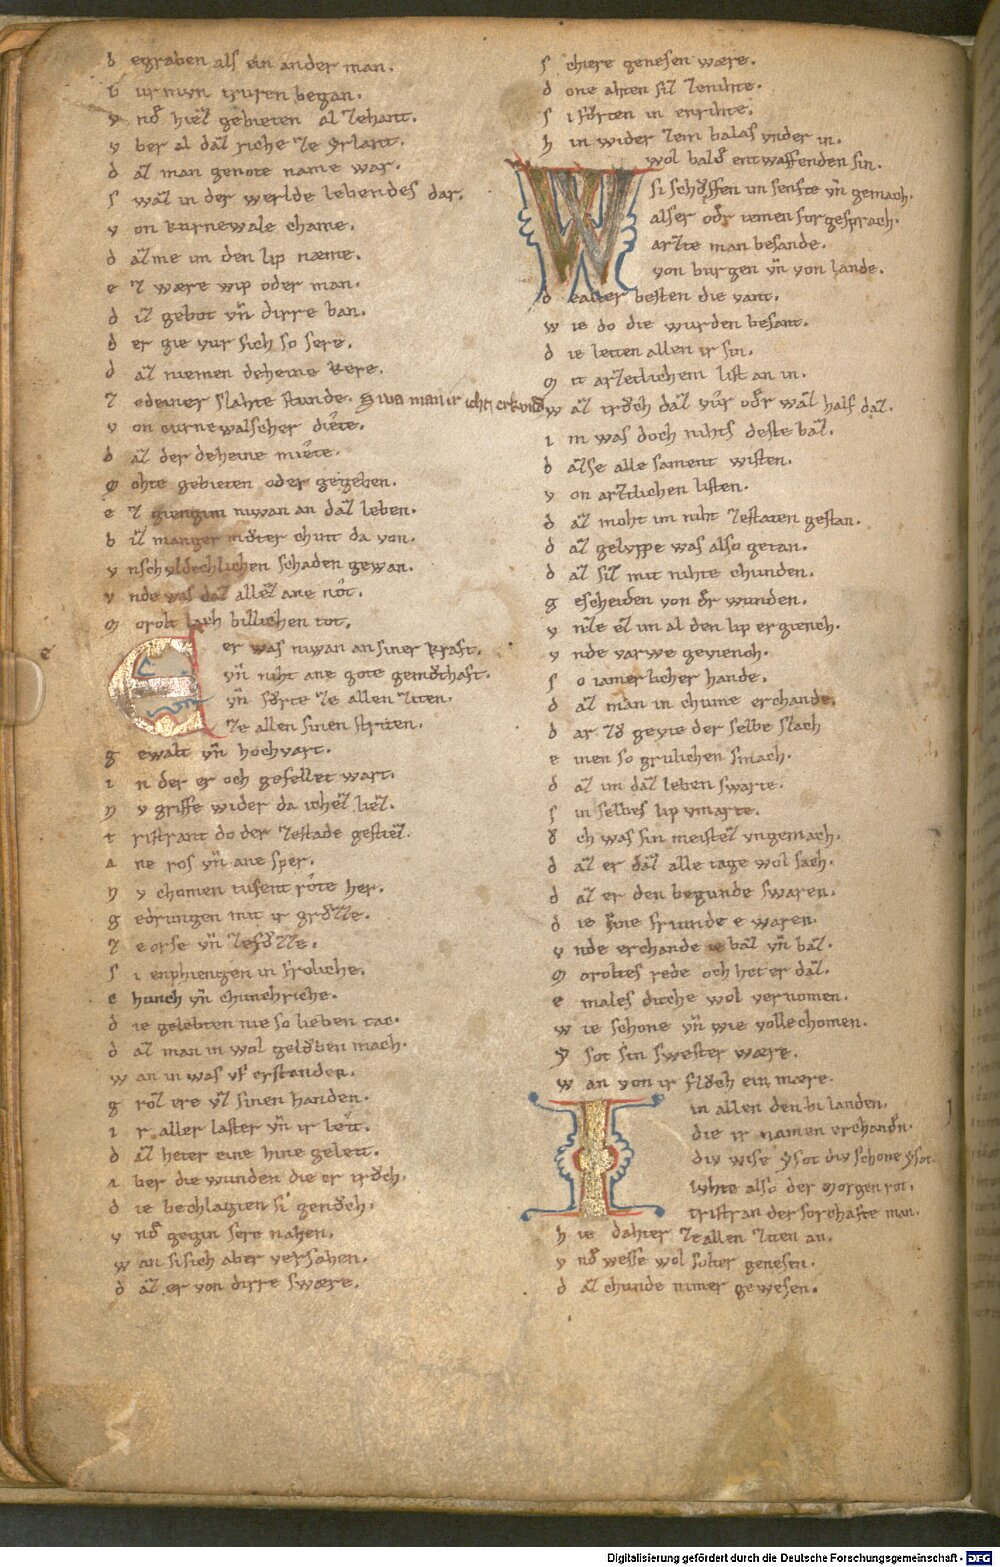 b egraben als ein ander man.
v ur mvn truren began.
v nde hiez gebieten al zehant.
v ber al daz riche ze yrlant.
d az man genote name war.
s waz in der werlde lebendes dar.
v on kurnewale chame.
d az me im den lip næme.
e z wære wip oder man.
d iz gebot vn̄ dirre ban.
d er gie vur sich so sere.
d az niemen deheine kere.
z edeiner slahte stunde. Swa man ir icht erkunde
v on curnewalscher diete.
d az der deheine miete.
m ohte gebieten oder gegeben.
e z giengim niwan an daz leben.
b iz manger mv̊ter chint da von.
v nschvldechlichen schaden gewan.
v nde was daz allez ane not.
m orolt lach billichen tot.
E er was niwan an siner kraft.
vn̄ niht ane gote gemv̊thaft.
vn̄ fv̊rte ze allen ziten.
ze allen sinen striten.
g ewalt vn̄ hochvart.
i n der er och gefellet wart.
N v griffe wider da ichez liez.
t ristrant do der zestade gestiez.
a ne ros vn̄ ane sper.
N v chomen tusent rote her.
g edrungen mit ir grv̊zze.
z e orse vn̄ zefv̊zze.
s i enphiengen in froliche.
e hunch vn̄ chunchriche.
d ie gelebten nie so lieben tac.
d az man in wol gelovben mach.
w an in was vf erstanden.
g roz ere vz sinen handen.
i r aller laster vn̄ ir leit.
d az heter eine hine geleit.
a ber die wunden die er trv̊ch.
d ie bechlagten si genv̊ch.
v nde gegin sere nahen.
w an si sich aber versahen.
d az er von dirre swære.
s chiere genesen wære.
d one ahten siz zenihte.
s i fv̊rten in enrihte.
h in wider zem balas vnder in.
W wol balde entwaffenden sin.
si schv̊ffen im senfte vn̄ gemach.
alser oder iemen forgesprach.
arzte man besande.
von burgen vn̄ von lande.
d ealler besten die vant.
w ie do die wurden besant.
d ie leiten allen ir sin.
m it arzetlichem list an in.
w az trv̊ch daz vu̇r oder waz half daz.
i m was doch nihts deste baz.
d azse alle sament wisten.
v on arztlichen listen.
d az moht im niht zestaten gestan.
d az gelvppe was also getan.
d az siz mit nihte chunden.
g escheiden von der wunden.
v nze ez im al den lip ergiench.
v nde varwe geviench.
s o iamerlicher hande.
d az man in chume erchande.
d ar zv̊ gevie der selbe slach
e inen so grulichen smach.
d az im daz leben swarte.
s in selbes lip vnmarte.
o ch was sin meistez vngemach.
d az er daz alle tage wol sach.
d az er den begunde swaren.
d ie sine frunde e waren.
v nde erchande ie baz vn̄ baz.
m oroltes rede och het er daz.
e males diche wol vernomen.
w ie schone vn̄ wie vollechomen.
ẏ sot sin swester wære.
w an von ir flovch ein mære.
I in allen den bi landen.
die ir namen erchanden.
div wise ẏsot div schone ẏsot
lvhte also der morgen rot.
tristran der sorchafte man.
h ie dahter ze allen ziten an.
v nde wesse wol solter genesen.
d az chunde nimer gewesen.
Digitalisierung gefördert durch die Deutsche Forschungsgemeinschaft - DFG